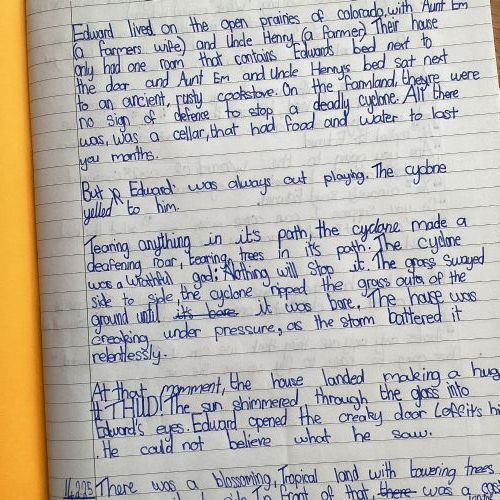 Edward lived on the open prairies of colorado, with Aunt Em
(a farmers wife) and Uncle Henry (a farmer). Their house
only had one room that contains Edwards bed next to
the door and Aunt Em and Uncle Henrys bed sat next
to an ancient, rusty cookstove. On the farmland, theyre were
no sign of defence to stop a deadly cyclone. All there
was, was a cellar, that had food and water to last
you months.
But Edward: was always out playing. The cyclone
yelled to him.
Tearing anything in it's path, the cyclone made a
deafening roar, tearing trees in it's path. The cyclone
was a wrathful god: Nothing will stop it. The grass swayed
side to side, the cyclone ripped the grass outa of the
ground until it's bare it was bare. The house was
creaking under pressure, as the storm battered it
relentlessly.
At that momment, the house landed making a hug
THUD! The sun shimmered through the glass into
Edward's eyes. Edward opened the creaky door
. He could not believe what he saw.
There was a blossoming, Tropical land with towering trees
front of that there was a